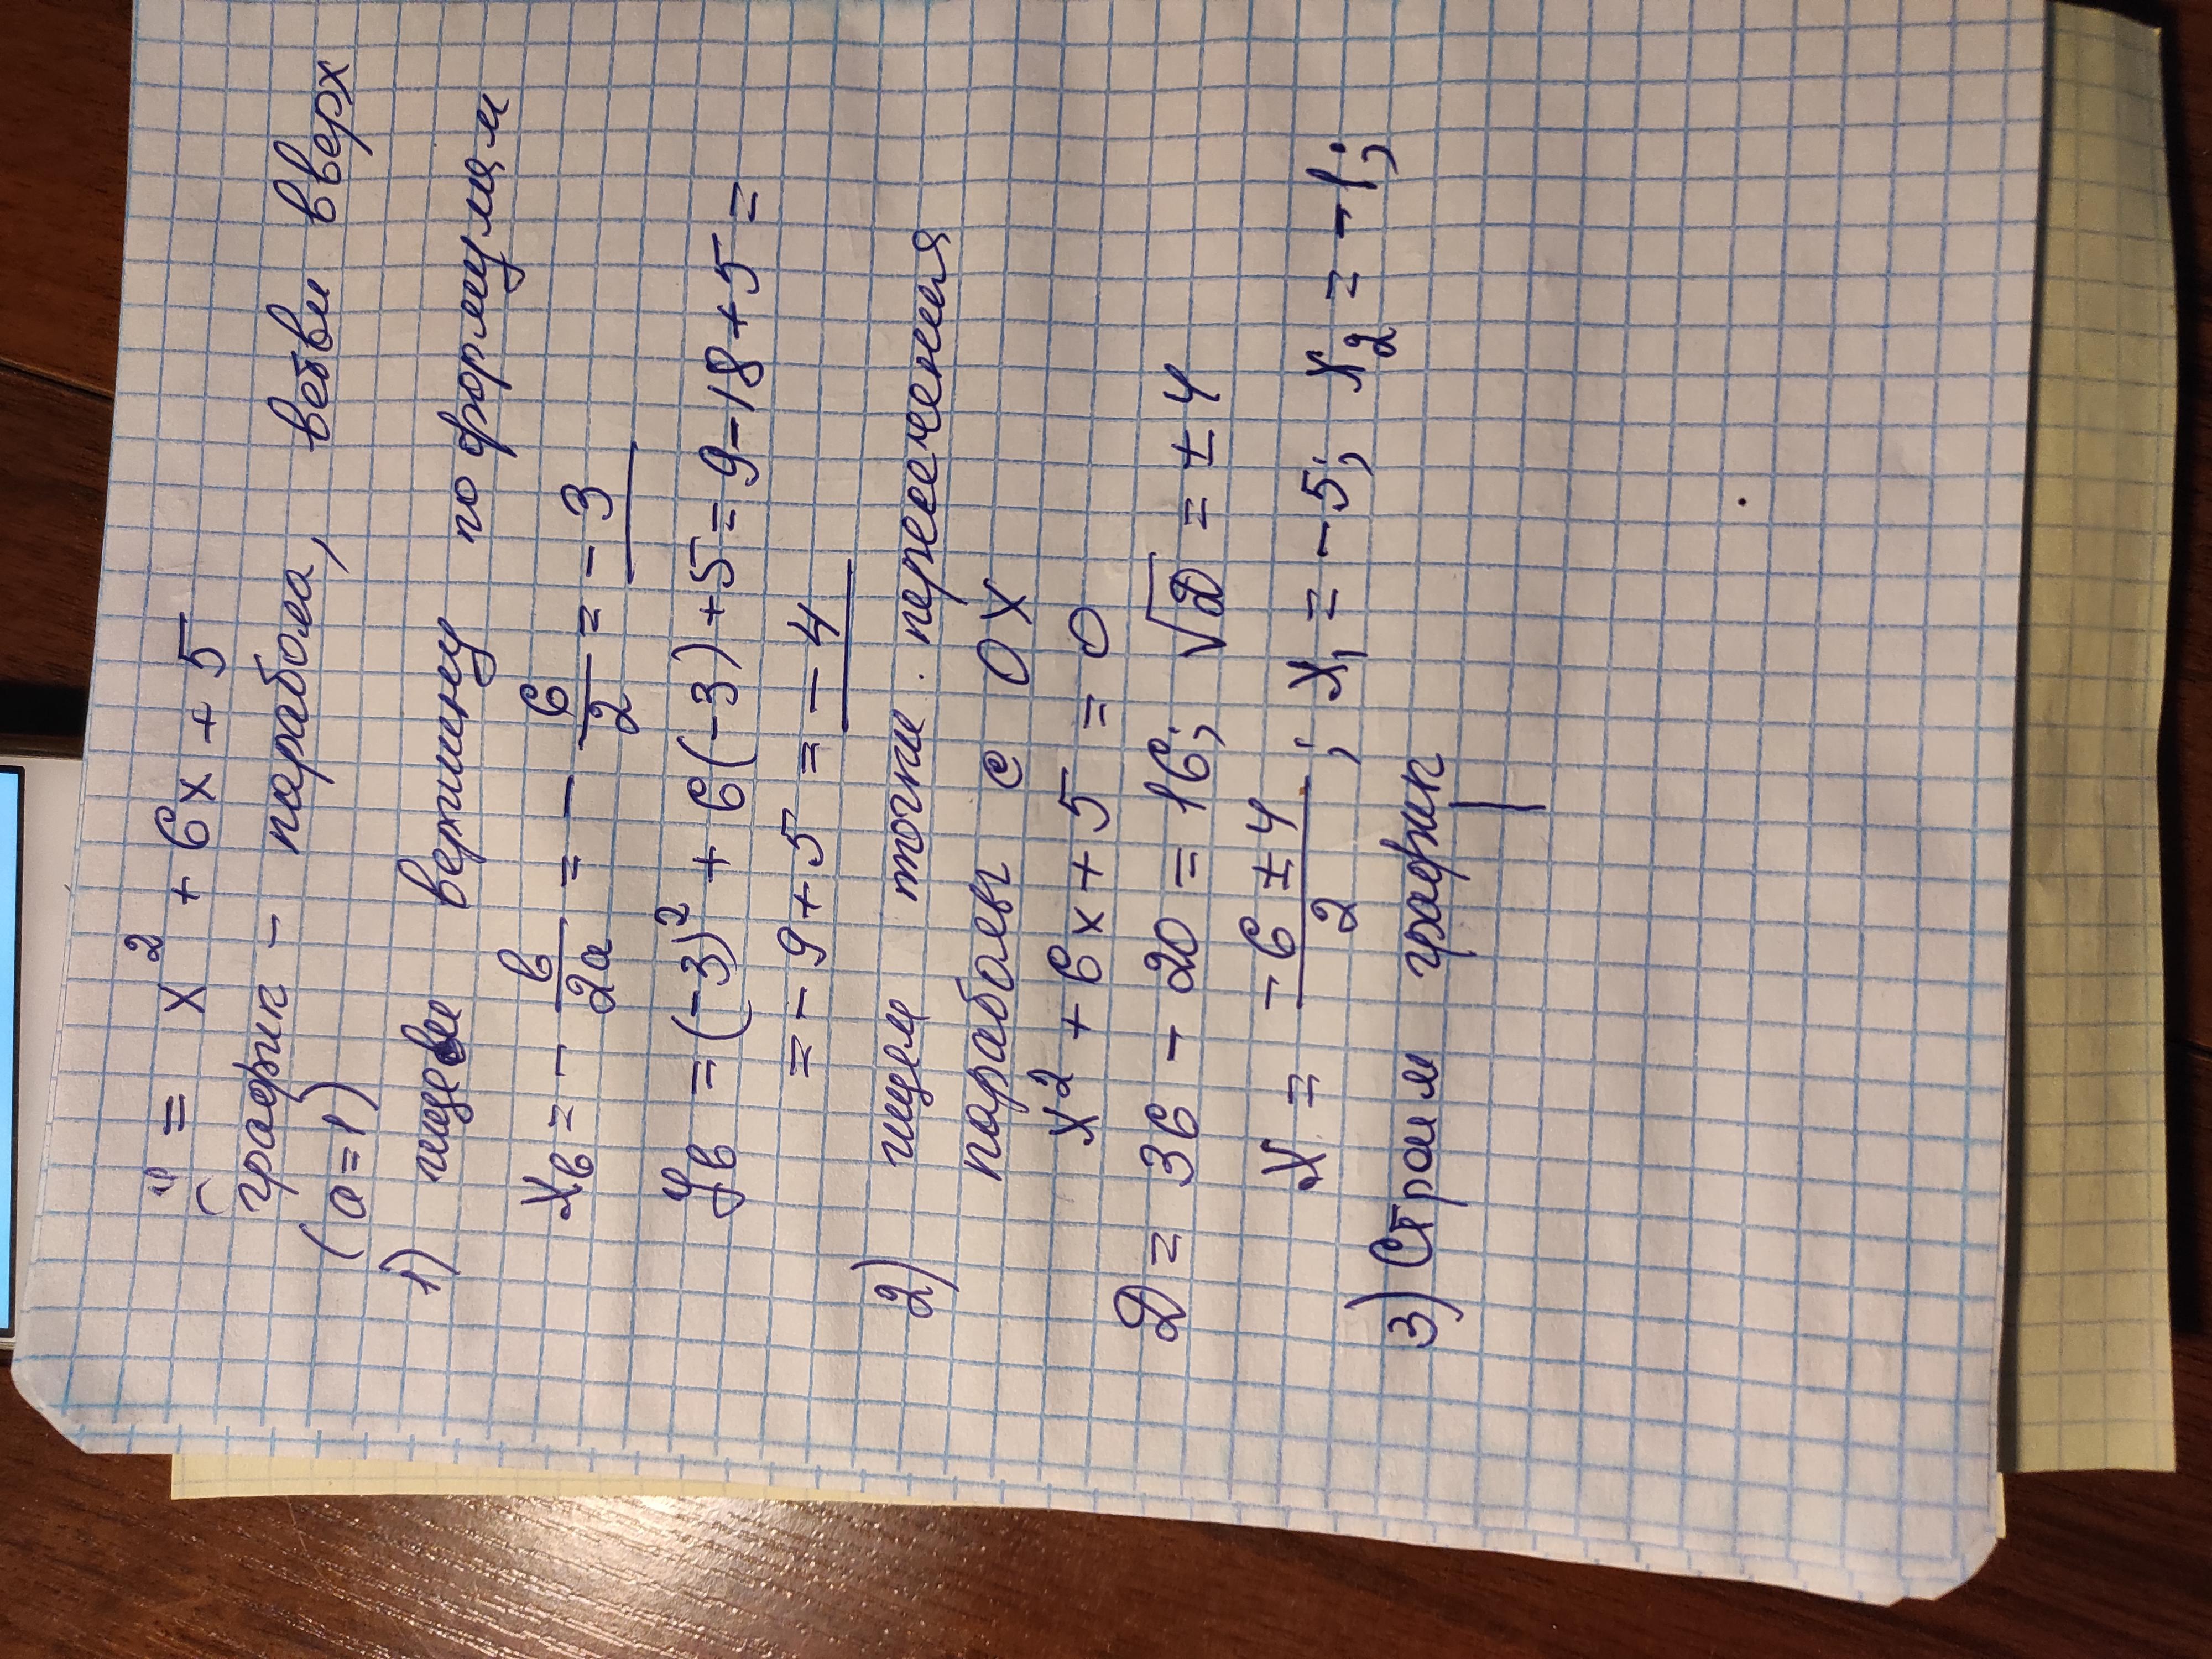 y = x² + 6x + 5
график - парабола, ветви вверх
(a=1)
1) ищем вершину по формулам
xв = - в/2a = - 6/2 = -3
yв = (-3)² + 6(-3)+5 = 9-18+5 =
= -9+5 = -4
2) ищем точки пересечения
параболы с OX
x² + 6x + 5 = 0
D = 36 - 20 = 16; √D = ±4
x = -6 ±4/2; x₁ = -5; x₂ = -1;
3) Строим график